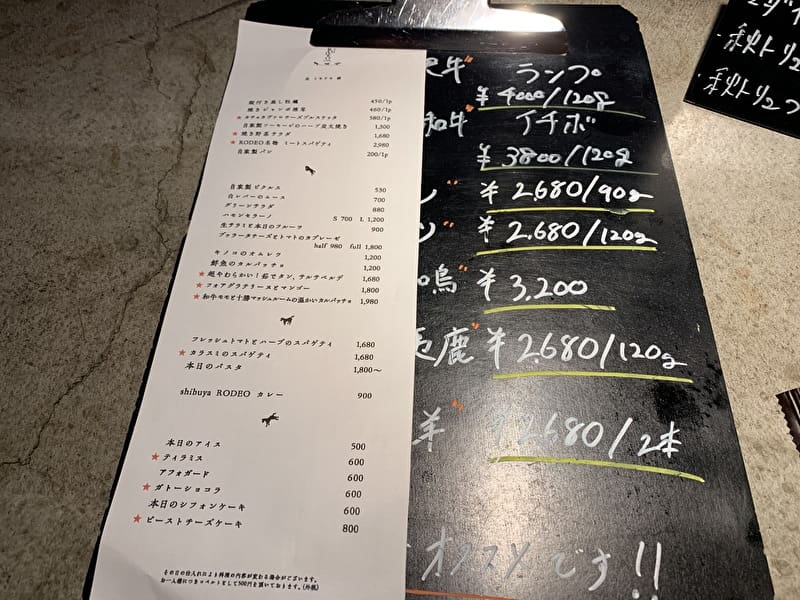 殻付き蒸し牡蠣 450/1p
焼きジャンボ椎茸 460/1p
★カチョカヴァロチーズブルスケッタ 580/1p
自家製ソーセージのハーブ炭火焼き 1,300
★焼き野菜サラダ 1,680
★RODEO名物 ミートスパゲティ 2,980
自家製パン 200/1p
自家製ピクルス 530
白レバーのムース 700
グリーンサラダ 880
ハモンセラーノ S 700 L 1,200
生サラミと本日のフルーツ 900
ブッラータチーズとトマトのカプレーゼ
half 980 full 1,800
キノコのオムレツ 1,200
鮮魚のカルパッチョ 1,200
★超やわらかい！茹でタン、サルサベルデ 1,680
★フォアグラテリーヌとマンゴー 1,800
★和牛モモと十勝マッシュルームの温かいカルパッチョ 1,980
フレッシュトマトとハーブのスパゲティ 1,680
★カラスミのスパゲティ 1,680
本日のパスタ 1,800～
shibuya RODEO カレー 900
本日のアイス 500
★ティラミス 600
アフォガード 600
★ガトーショコラ 600
本日のシフォンケーキ 600
★ビーストチーズケーキ 800
その日の仕入れにより料理の内容が変わる場合がございます。
お一人様につきコペルトとして500円を頂いております。(外税)
牛" ランプ
¥4000/120g
和牛" イチボ
¥3800/120g
¥2.680/90g
¥2.680/120g
鳥" ¥3.200
鹿" ¥2.680/120g
羊" ¥2.680/2本
オススメです!!
・秋トリュ
・秋トリュフ